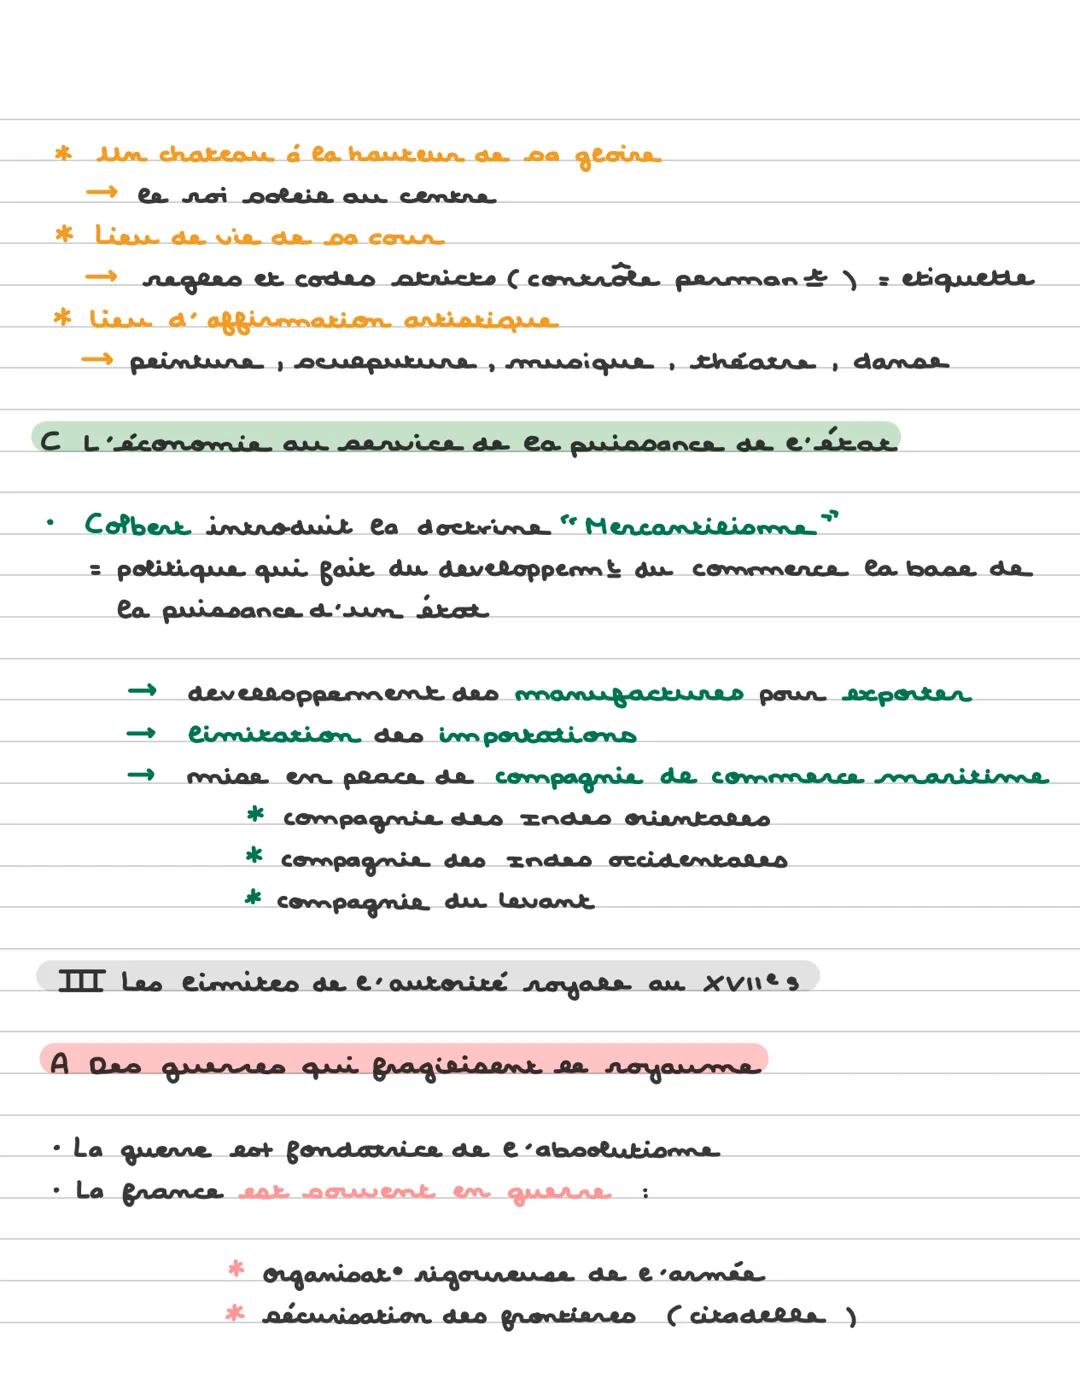 * Un chateau á la hauteur de sa gloire
→ le roi soleil au centre
* Lieu de vie de sa cour
→ regles et codes stricts ( contrôle permant ) = etiquette
* lieu d'affirmation artistique
→ peinture, sculputure, musique, théatre, danse
C L'économie au service de la puissance de l'état
· Colbert introduit la doctrine "Mercantilisme"
= politique qui fait du developpemt du commerce la base de
la puissance d'un état
→ develloppement des manufactures pour exporter
→ limitation des importations
→ mise en place de compagnie de commerce maritime
* compagnie des Indes orientales
* compagnie des Indes occidentales
* compagnie du Levant
III Les limites de l'autorité royale au XVIIe s
A Des guerres qui fragilisent le royaume
· La guerre est fondatrice de l'absolutisme
· La france est souvent en guerre :
* organisat° rigoureuse de l'armée
* sécurisation des frontieres ( citadelle )